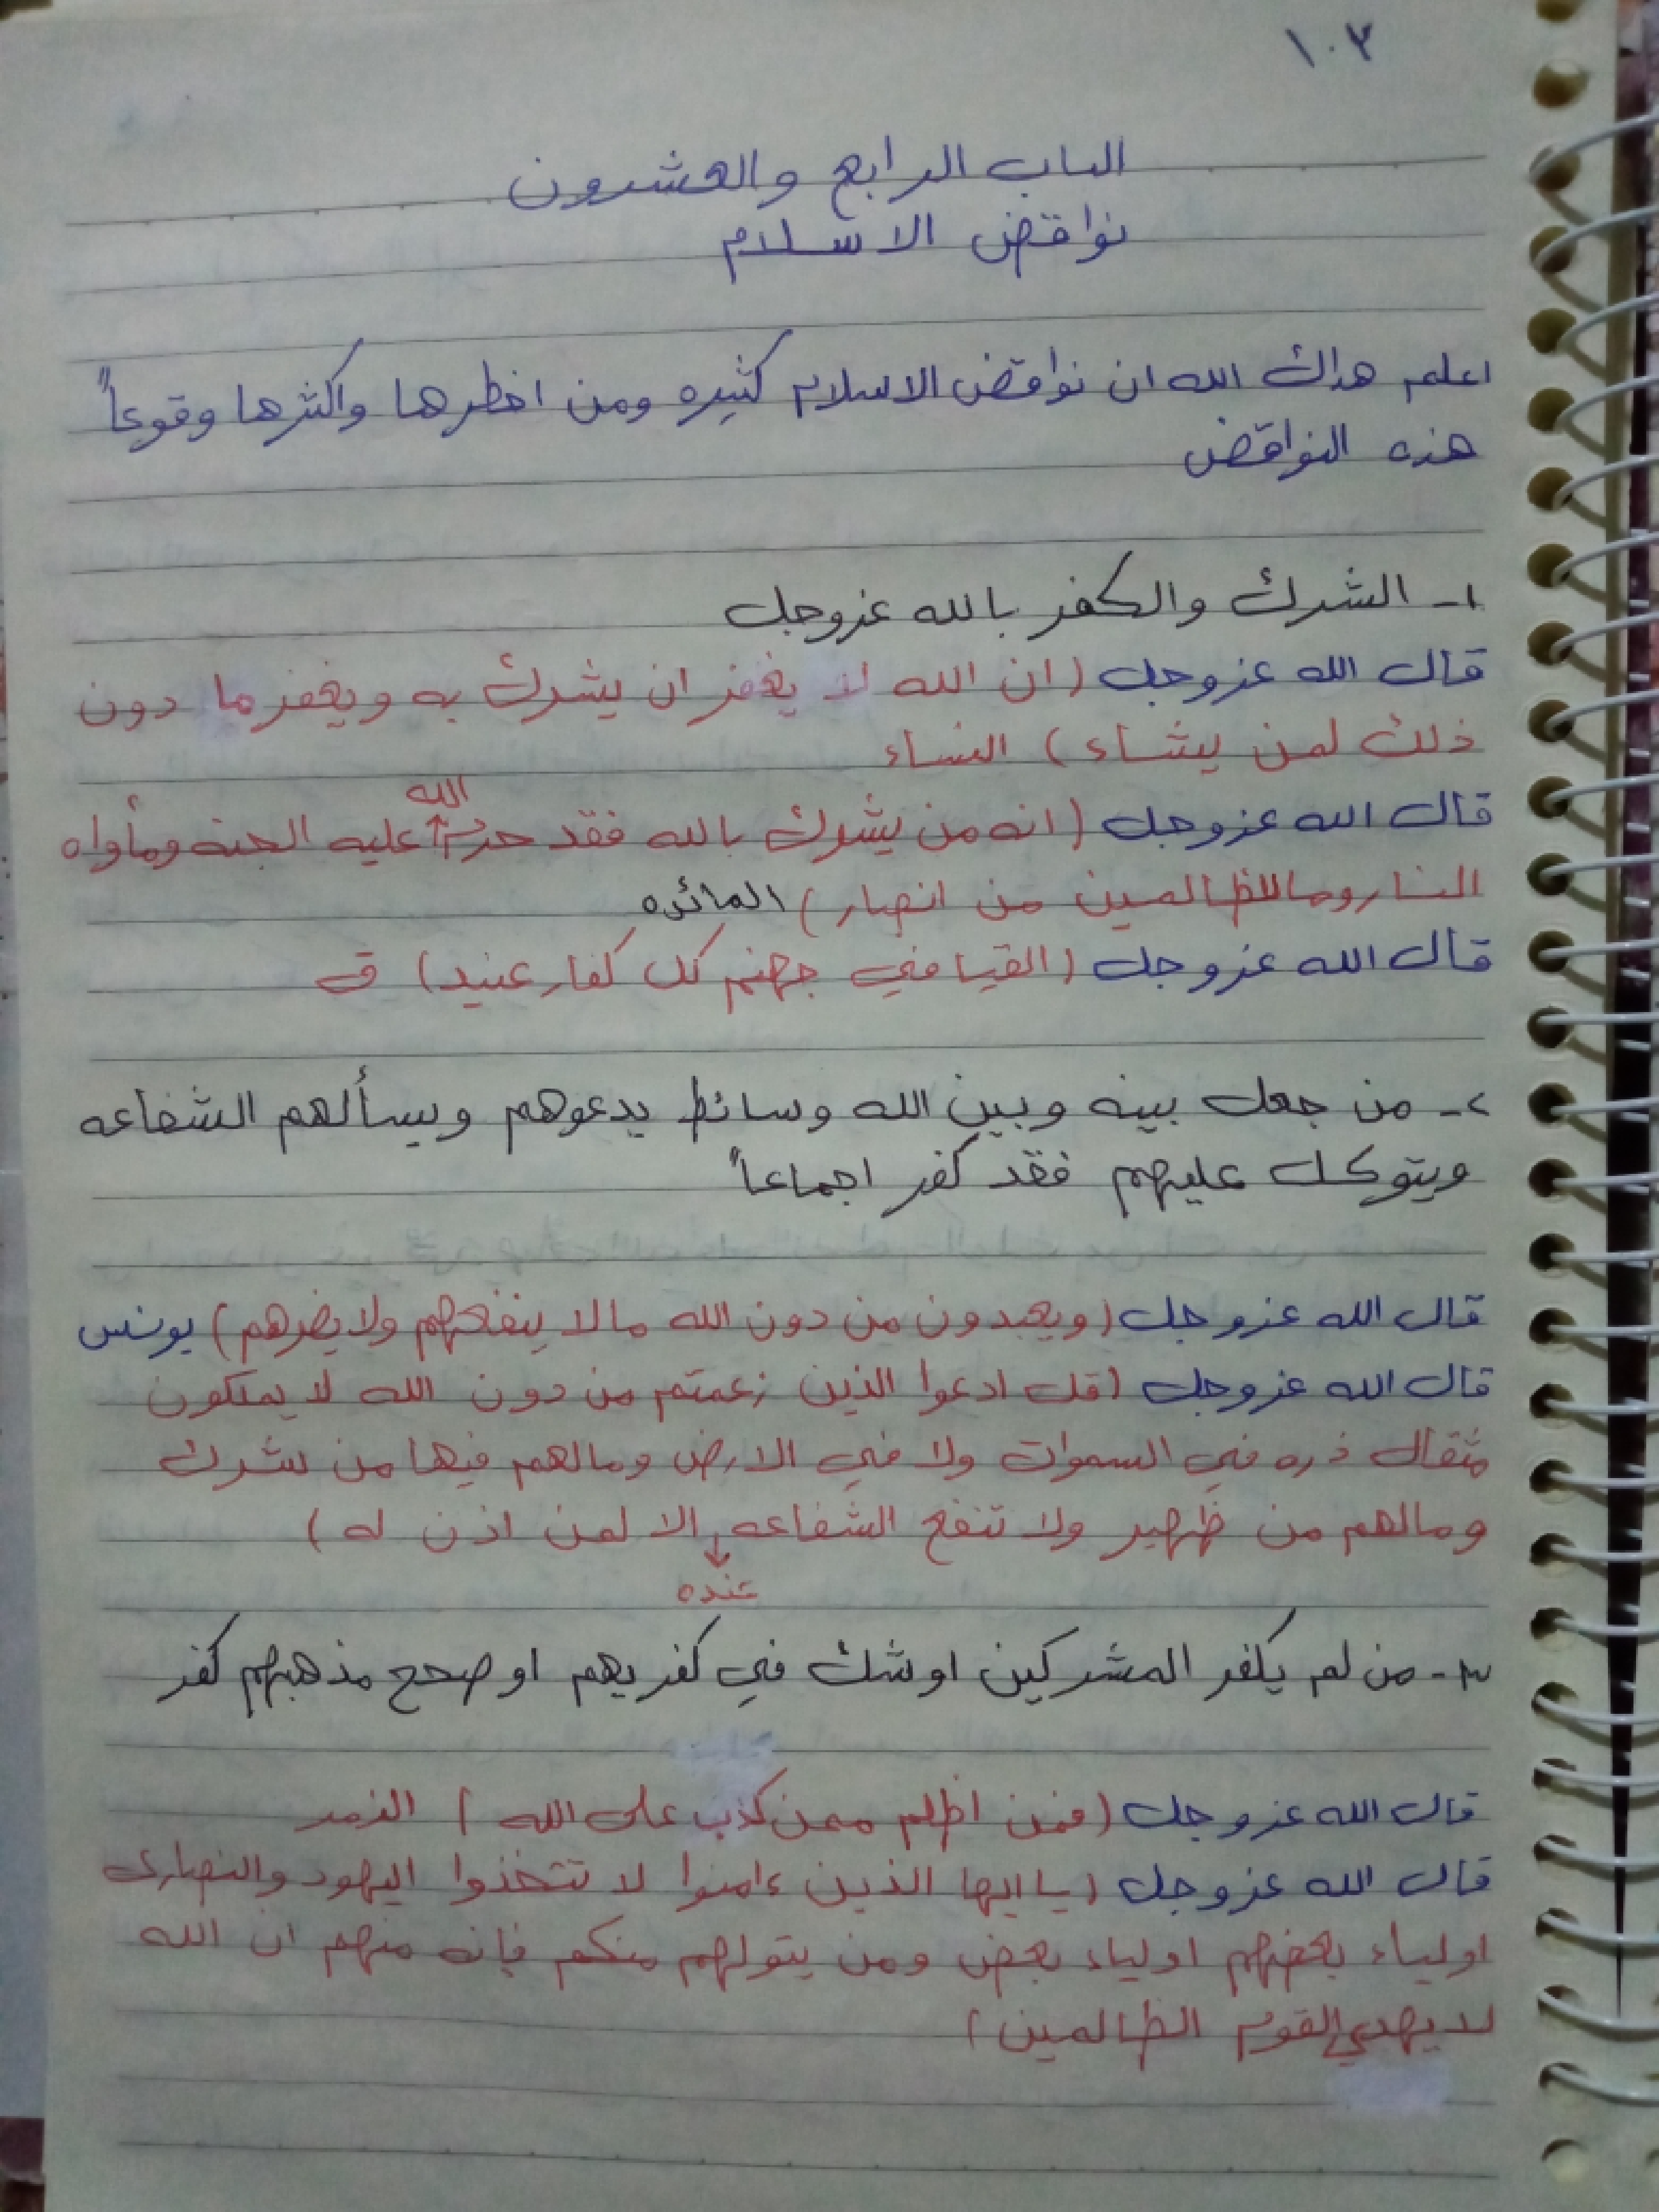 ١٠٢
الباب الرابع والعشرون
نواقض الاسلام
اعلم هداك الله ان نواقض الاسلام كثيره ومن اخطرها واكثرها وقوعاً
هذه النواقض
١- الشرك والكفر بالله عزوجل
قال الله عزوجل (ان الله لا يغفر ان يشرك به ويغفر ما دون
ذلك لمن يشاء) النساء
قال الله عزوجل (انه من يشرك بالله فقد حرم الله عليه الجنه ومأواه
النار وماللظالمين من انصار) المائده
قال الله عزوجل (القيا في جهنم كل كفار عنيد) ق
٢- من جعل بينه وبين الله وسائط يدعوهم ويسألهم الشفاعه
ويتوكل عليهم فقد كفر اجماعاً
قال الله عزوجل (ويعبدون من دون الله مالا ينفعهم ولا يضرهم) يونس
قال الله عزوجل (قل ادعوا الذين زعمتم من دون الله لا يملكون
مثقال ذره في السموات ولا في الارض ومالهم فيها من شرك
ومالهم من ظهير ولا تنفع الشفاعه عنده الا لمن اذن له)
٣- من لم يكفر المشركين اوشك في كفريهم او صحح مذهبهم كفر
قال الله عزوجل (فمن اظلم ممن كذب على الله) الزمر
قال الله عزوجل (ياايها الذين ءامنوا لا تتخذوا اليهود والنصارى
اولياء بعضهم اولياء بعض ومن يتولهم منكم فإنه منهم ان الله
لا يهدي القوم الظالمين)